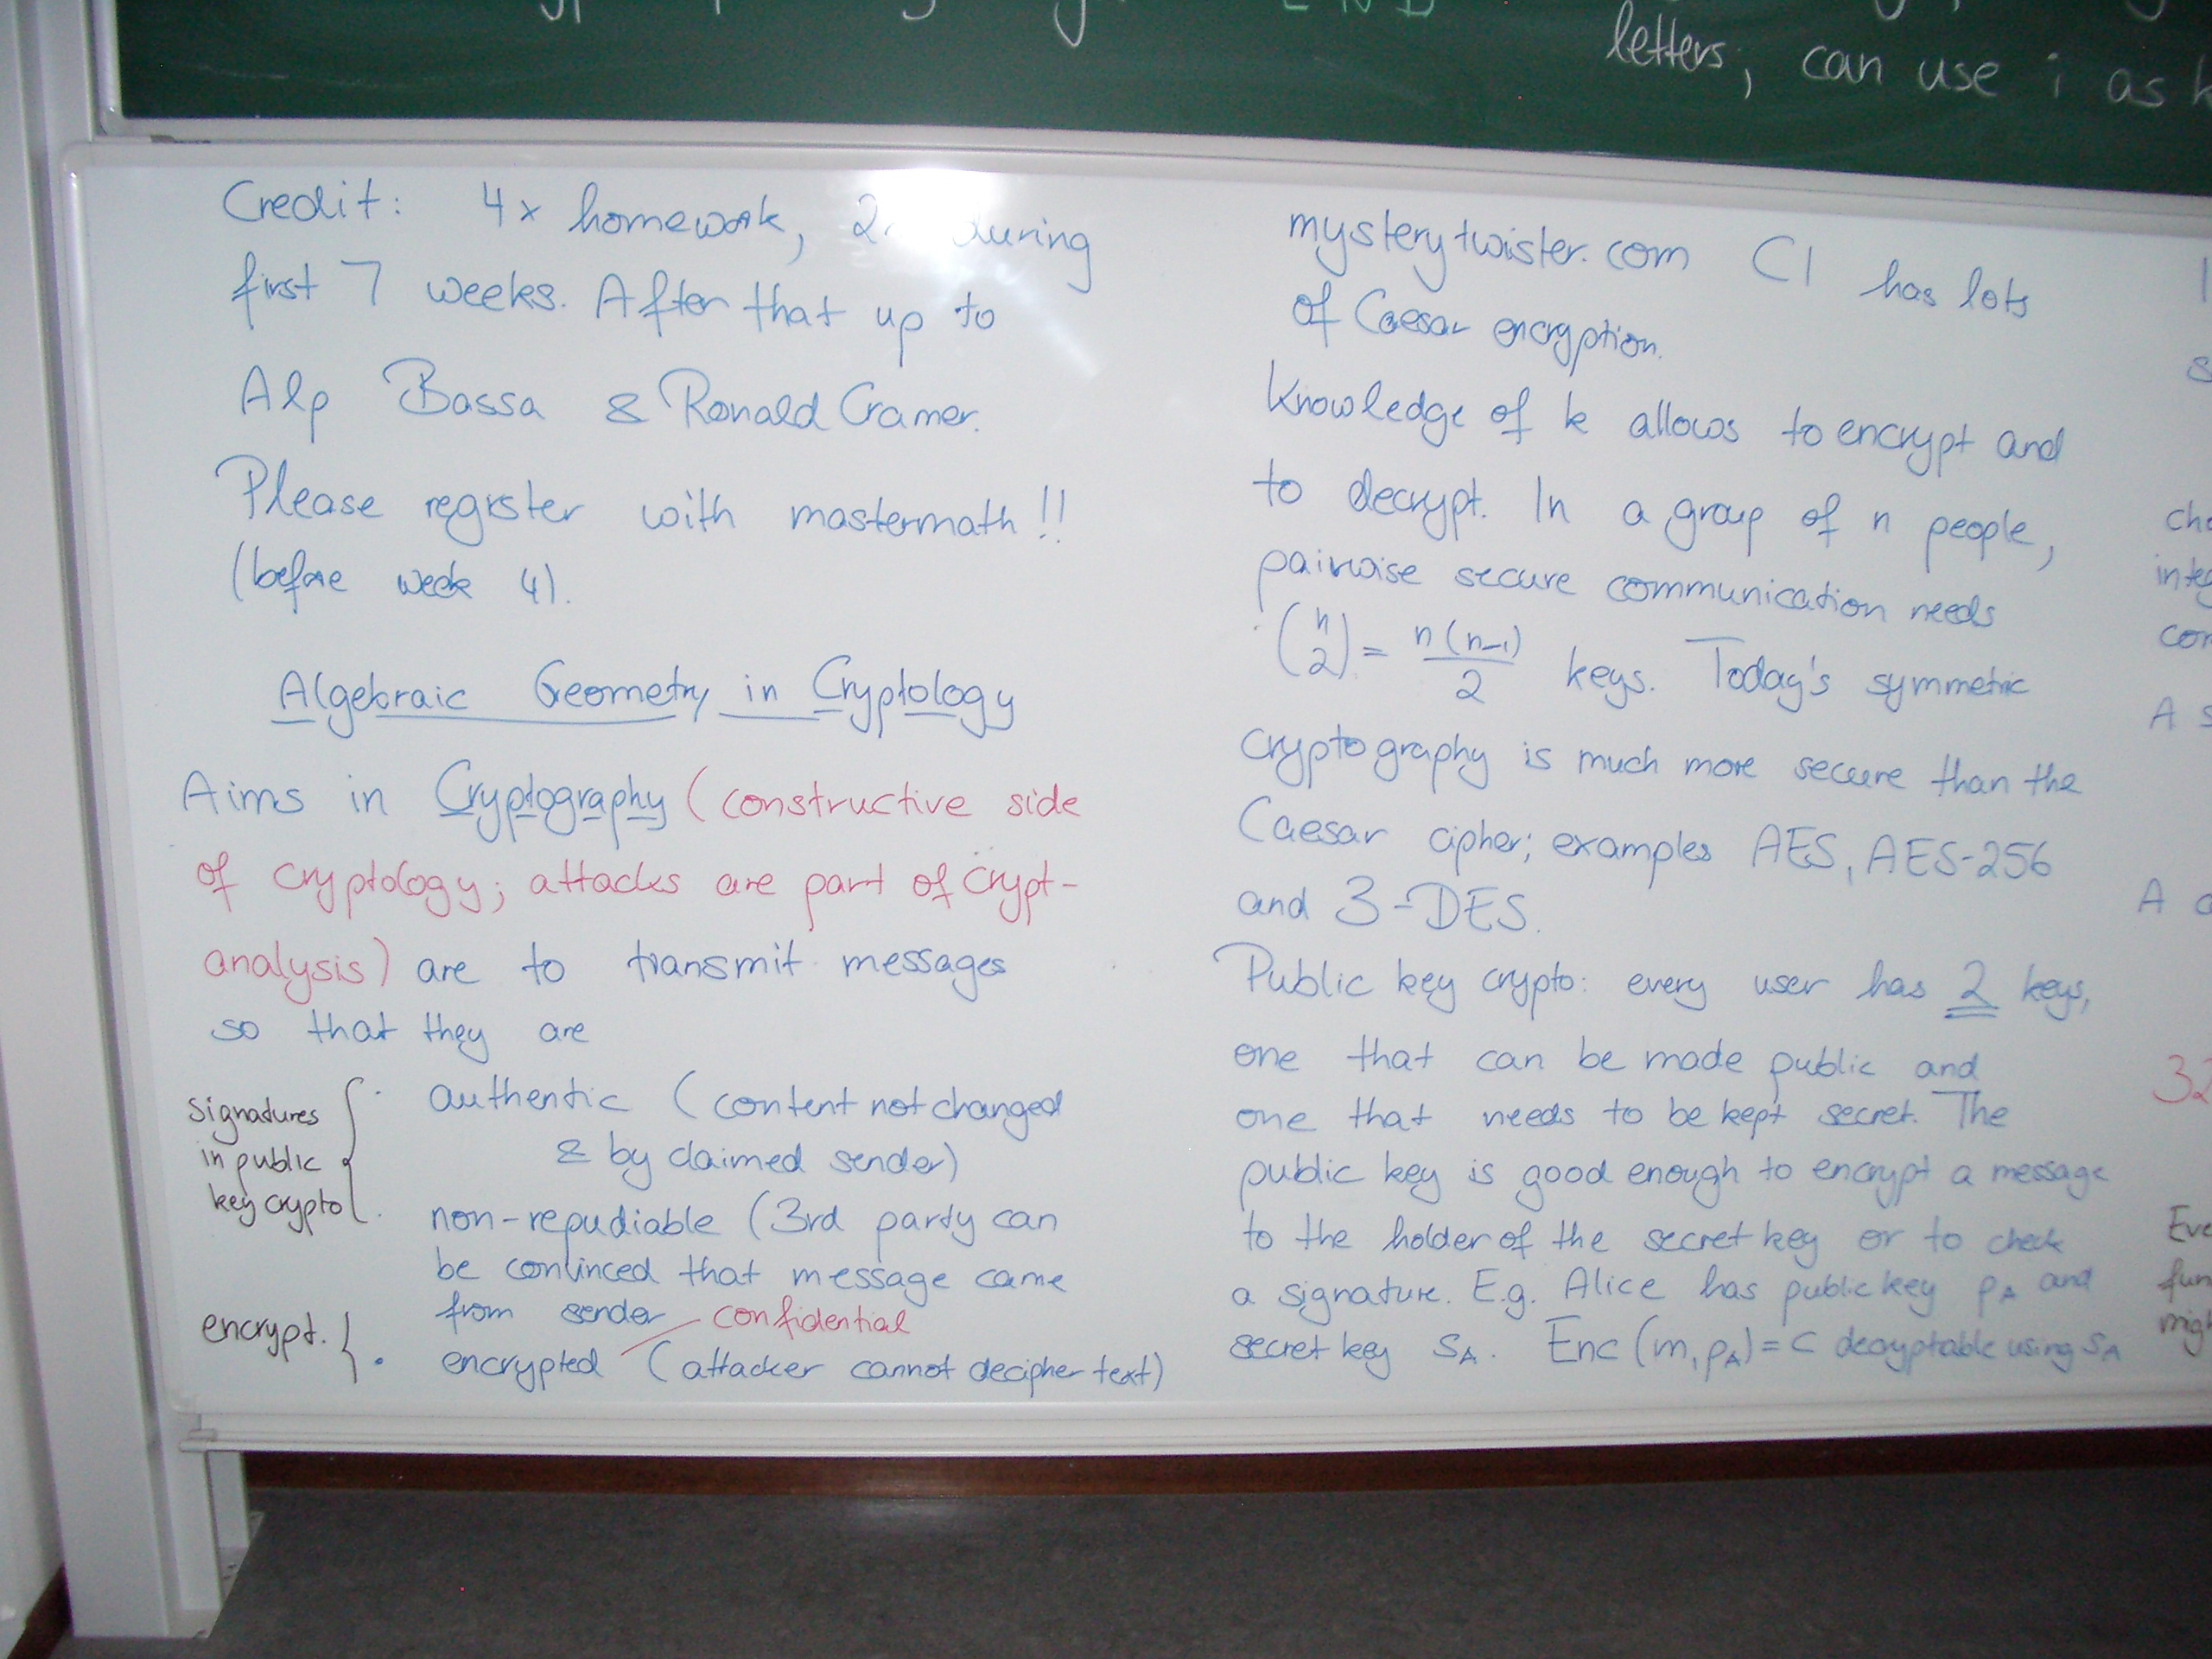 letters, can use i as
Credit: 4x homework, 2x during
first 7 weeks. After that up to
Alp Bassa & Ronald Cramer.
Please register with mastermath!!
(before week 4).
Algebraic Geometry in Cryptology
Aims in Cryptography (constructive side
of cryptology; attacks are part of crypt-
analysis) are to transmit messages
so that they are
signatures
in public
key crypto
· authentic (content not changed
& by claimed sender)
· non-repudiable (3rd party can
be convinced that message came
from sender
confidential
encrypt.
· encrypted (attacker cannot decipher text)
mysterytwister.com C1 has lots
of Caesar encryption.
Knowledge of k allows to encrypt and
to decrypt. In a group of n people,
pairwise secure communication needs
(n 2) = n(n-1)/2 keys. Today's symmetric
cryptography is much more secure than the
Caesar cipher; examples AES, AES-256
and 3-DES.
Public key crypto: every user has 2 keys,
one that can be made public and
one that needs to be kept secret. The
public key is good enough to encrypt a message
to the holder of the secret key or to check
a signature. E.g. Alice has public key pA and
secret key sA. Enc(m, pA) = c decryptable using sA
A
A
32